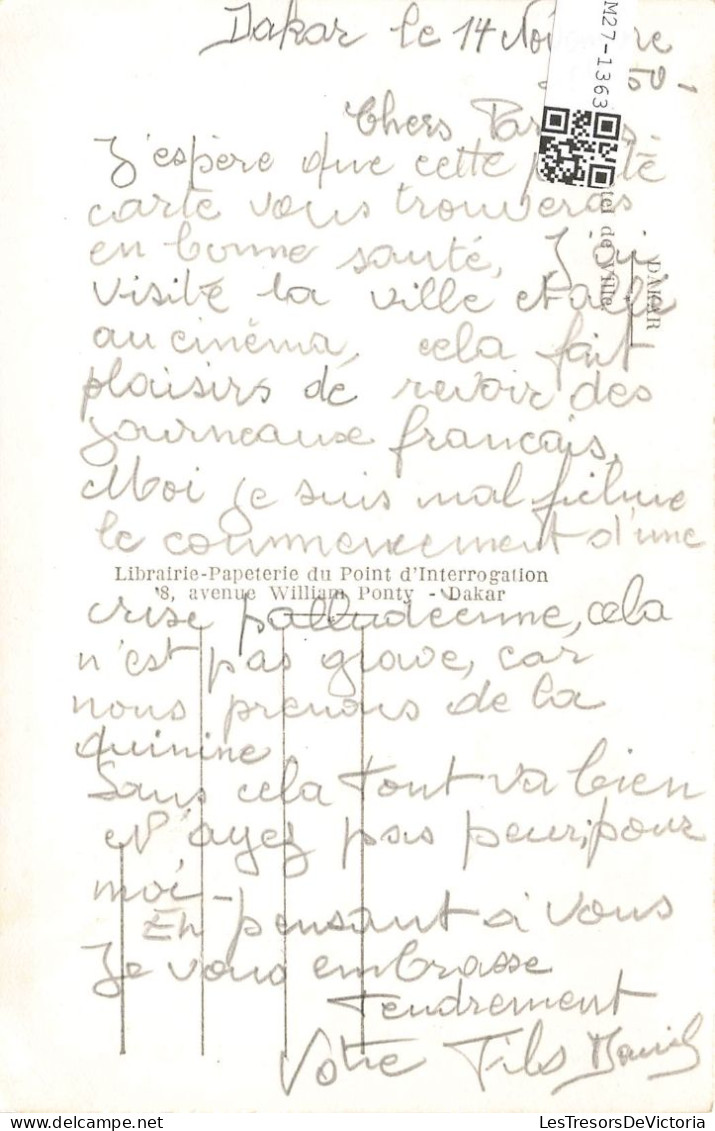 Dakar le 14 Novembre
50-
Chers Parents.
J'espère que cette petite
carte vous trouveras
en bonne santé, J'ai
visité la ville et allé
au cinéma, cela fait
plaisirs de revoir des
journeaux francais.
Moi je suis mal fichue
le commencement d'une
Librairie-Papeterie du Point d'Interrogation
8, avenue William Ponty - Dakar
crise palludéenne, cela
n'est pas grave, car
nous prenons de la
quinine
Sans cela tout va bien
N'ayez pas peur, pour
moi-
En pensant à vous
Je vous embrasse
Tendrement
Votre Fils Daniel
M27-1363
DAKAR
tel de Ville
LesTresorsDeVictoria